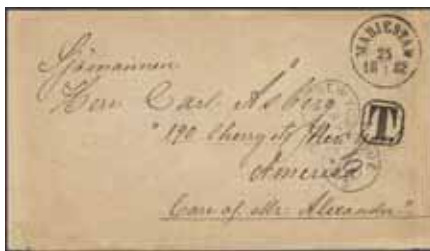 MARIESTAD
25
18 82
Sjömannen
Herr Carl Asberg
190 Cherry st, New
T
America
Care of Mr. Alexander